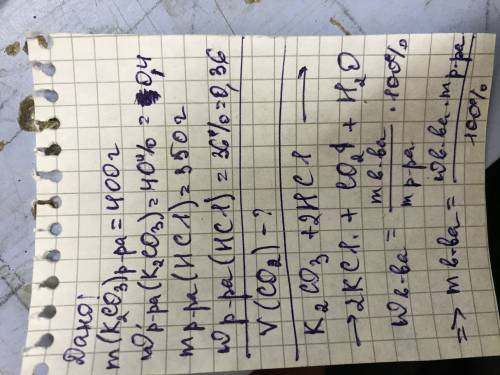 Дано:
m(K₂CO₃)р-ра = 400г
Wр-ра(K₂CO₃) = 40% = 0,4
mр-ра(HCl) = 350г
Wр-ра(HCl) = 36% = 0,36
V(CO₂) - ?
K₂CO₃ + 2HCl →
→ 2KCl + CO₂↑ + H₂O
Wв-ва = mв-ва / mр-ра · 100%
=> mв-ва = Wв-ва · mр-ра / 100%